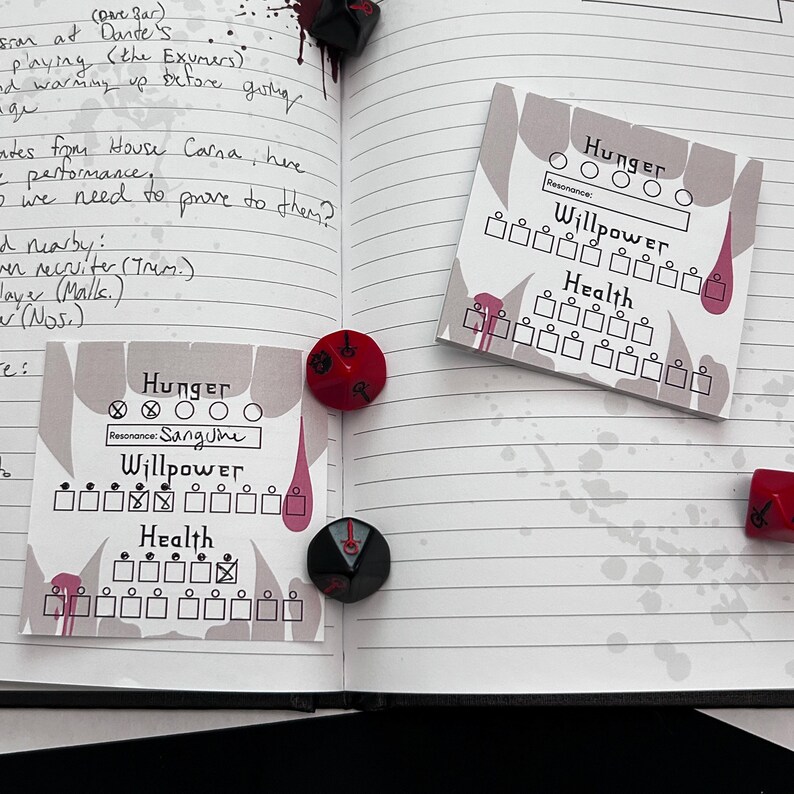 (Dive Bar)
at Dante's
playing (the Exumers)
warming up before going
from House Carna, here
performance.
we need to prove to them?
nearby:
recruiter (Trem.)
(Malk.)
(Nos.)
Hunger
Resonance:
Willpower
Health
Hunger
Resonance: Sanguine
Willpower
Health